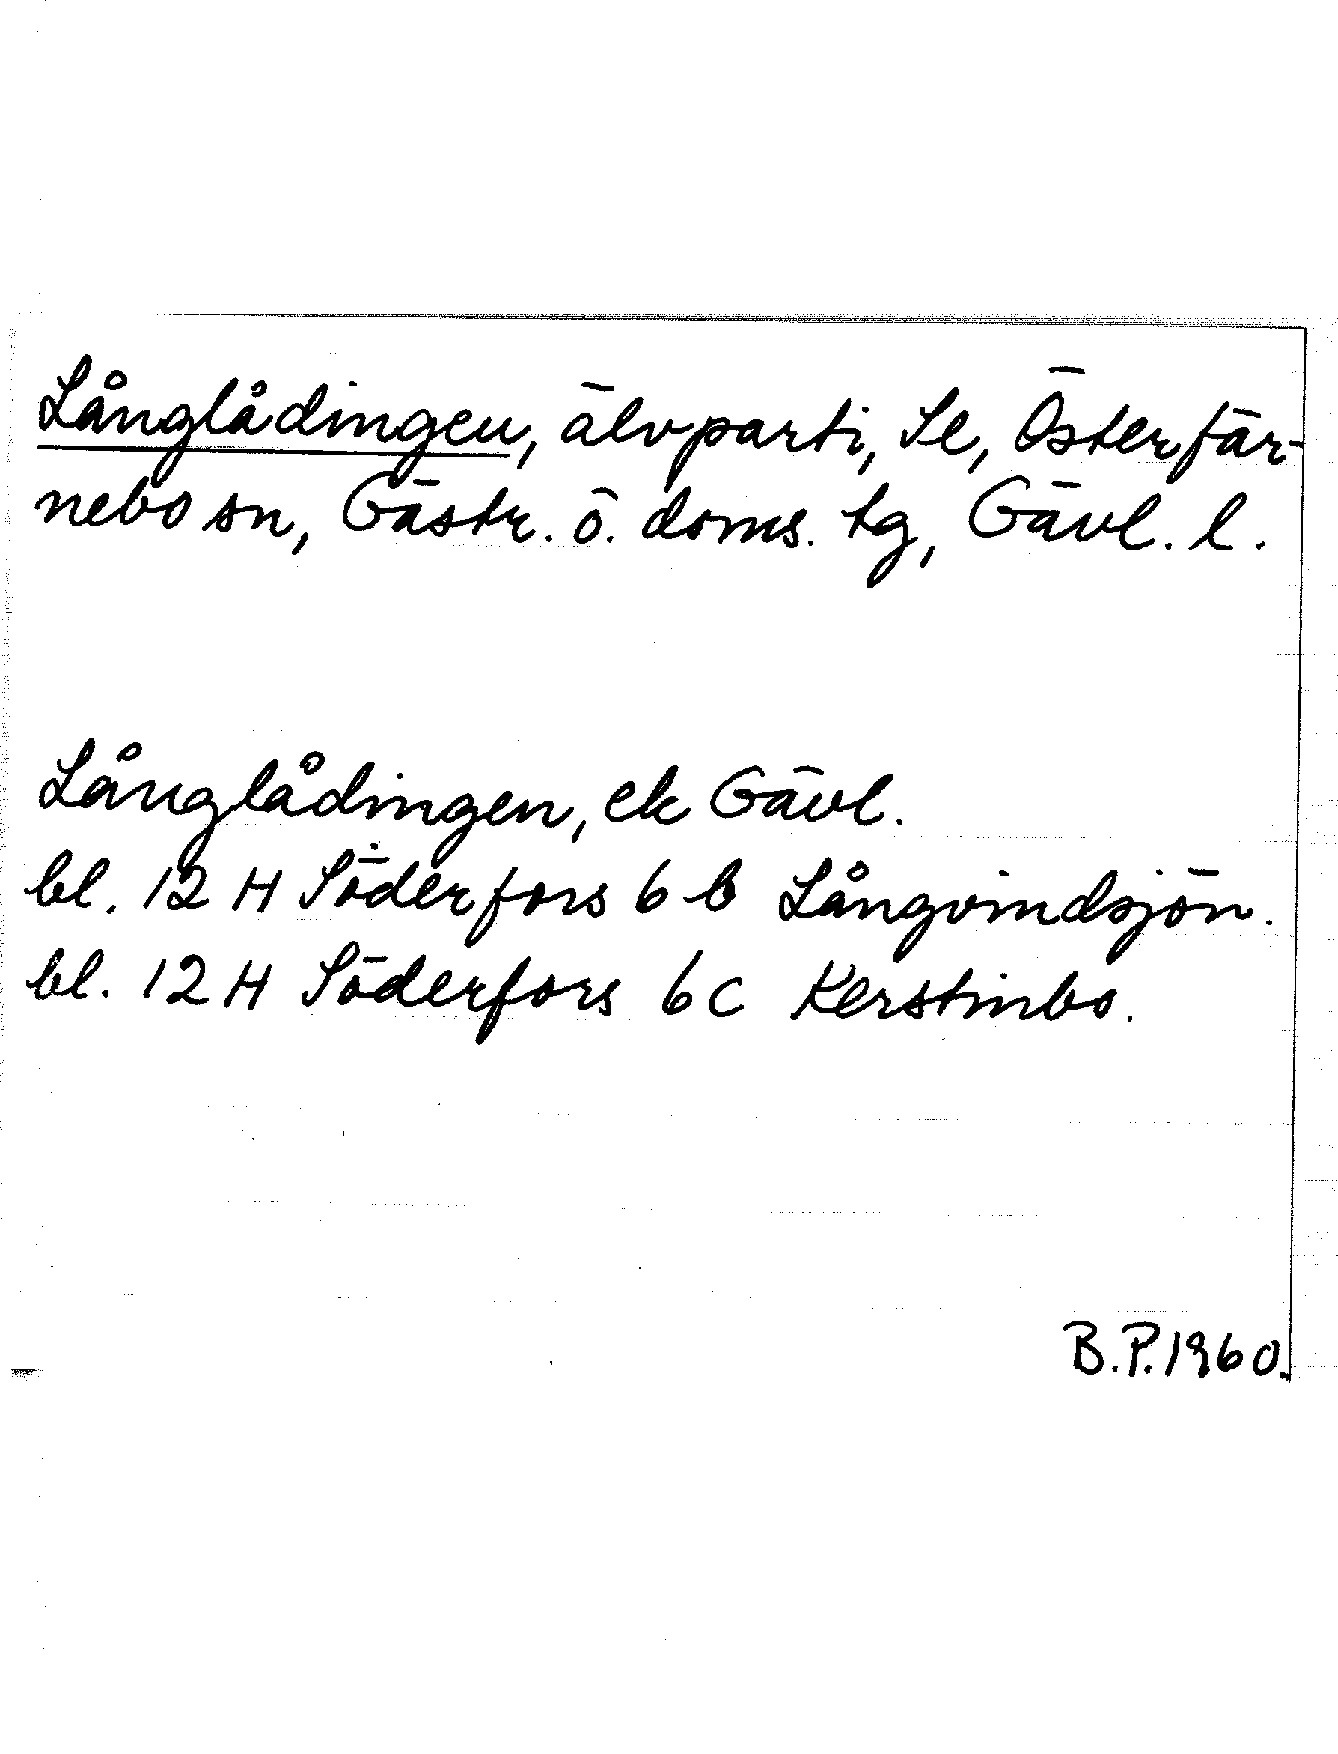 Långlådingen, älvparti, Se, Österfär-
nebo sn, Gästr. ö. doms. tg, Gävl. l.
Långlådingen, ek Gävl.
bl. 12 H Söderfors 6 b Långvindsjön.
bl. 12 H Söderfors 6 c Kerstinbo.
B.P. 1960.